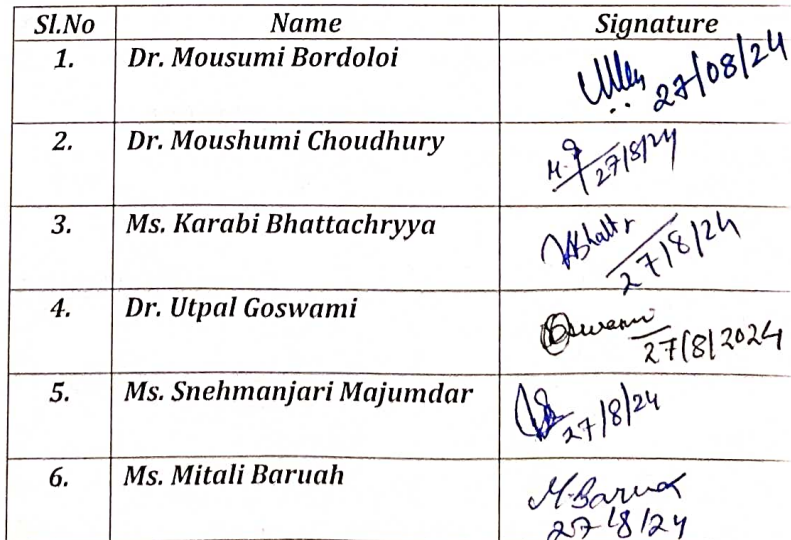 Sl.No Name Signature
1. Dr. Mousumi Bordoloi
27/08/24
2. Dr. Moushumi Choudhury
27/8/24
3. Ms. Karabi Bhattachryya
27/8/24
4. Dr. Utpal Goswami
27/8/2024
5. Ms. Snehmanjari Majumdar
27/8/24
6. Ms. Mitali Baruah
M. Barua
27/8/24